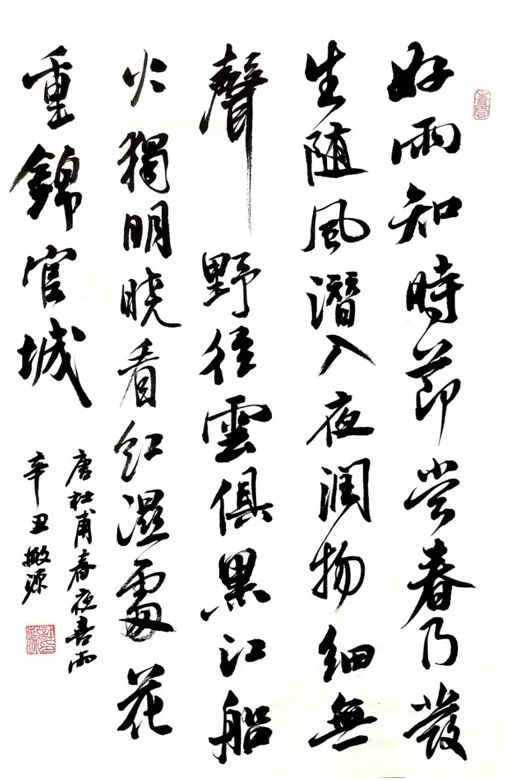 好雨知時節當春乃發
生随風潛入夜润物细無
聲 野径雲俱黑江船
火獨明晓看红濕處花
重錦官城
唐杜甫春夜喜雨
辛丑 源